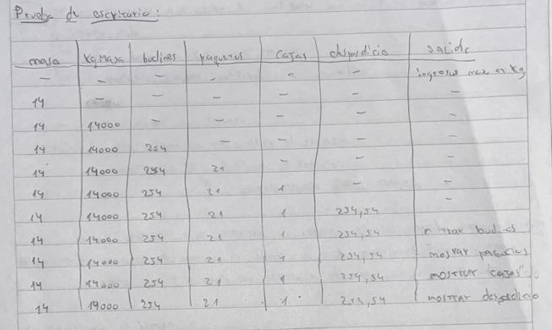 Prueba de escritorio:
masa KgMasa budines paquetes cajas desperdicio salida
- - - - - - ingresar masa en Kg
14 - - - - - -
14 14000 - - - - -
14 14000 254 - - - -
14 14000 254 21 - - -
14 14000 254 21 1 - -
14 14000 254 21 1 254,54 -
14 14000 254 21 1 254,54 mostrar budines
14 14000 254 21 1 254,54 mostrar paquetes
14 14000 254 21 1 254,54 mostrar cajas
14 14000 254 21 1 254,54 mostrar desperdicio